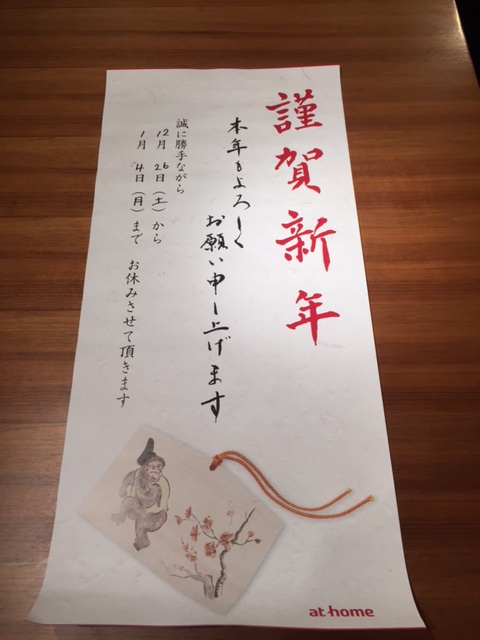 謹賀新年
本年もよろしく
お願い申し上げます
誠に勝手ながら
12月26日(土)から
1月4日(月)まで お休みさせて頂きます
at home